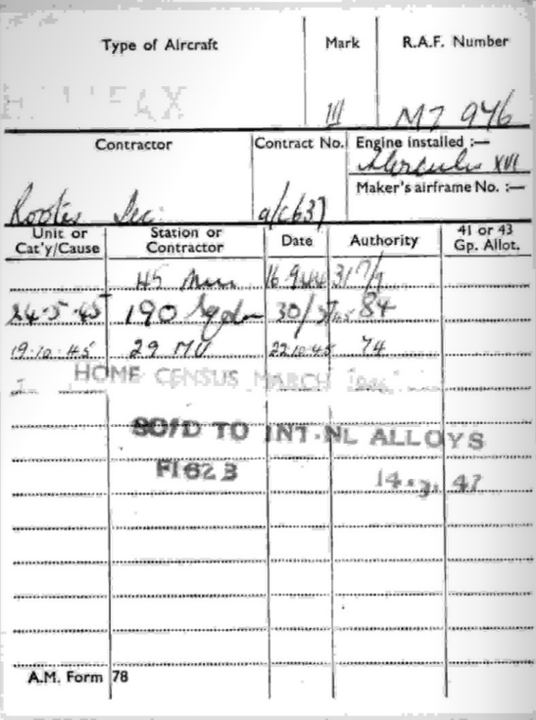 Type of Aircraft Mark R.A.F. Number
HALIFAX III MZ 976
Contractor Contract No. Engine installed :—
Hercules XVI
Maker's airframe No. :—
Rootes Sec. a/c637
Unit or Cat'y/Cause Station or Contractor Date Authority 41 or 43 Gp. Allot.
45 16.9.44 317/9
24.5.45 190 Sqdn 30/5 84
19.10.45 29 MU 22.10.45 74
HOME CENSUS MARCH 1946
SO/D TO INT.NL ALLOYS
F1623 14.3.47
A.M. Form 78